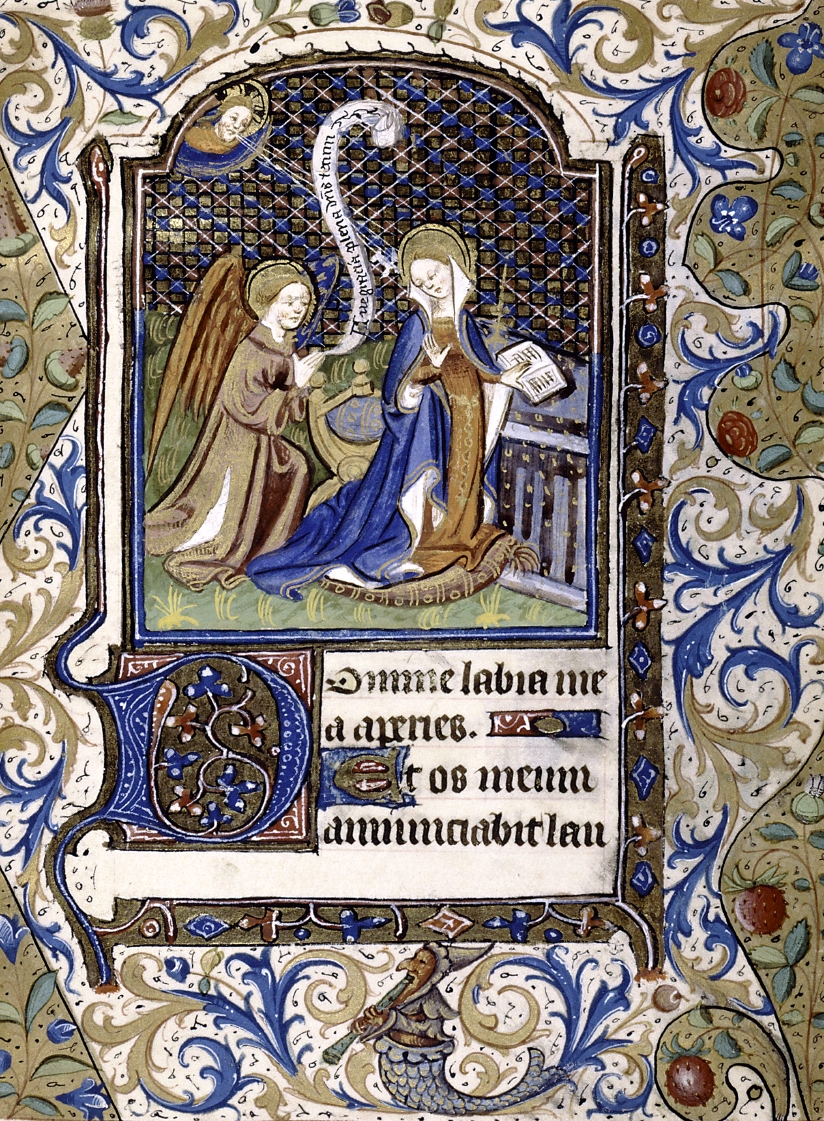 Aue gracia plena dns tecum
Domine labia me
a aperies.
Et os meum
annunciabit lau